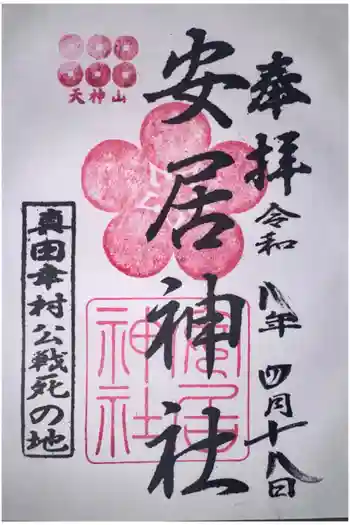 奉拝
令和八年四月十八日
安居神社
天神山
真田幸村公戦死の地
安居
神社